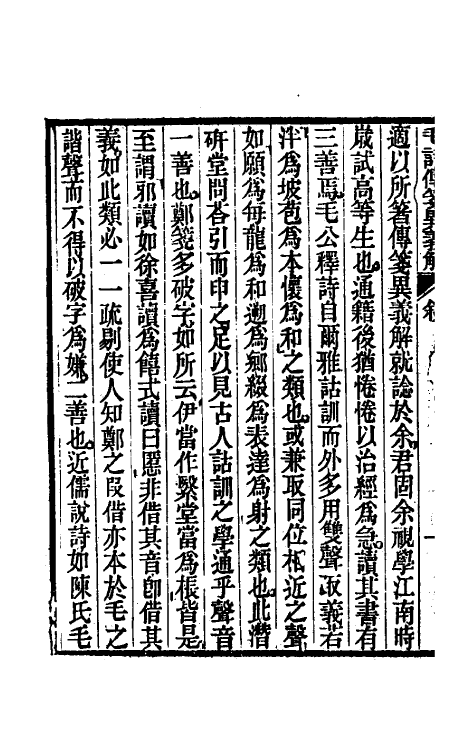 毛詩傳箋異義解 卷
適以所箸傳箋異義解就諗於余君固余視學江南時
歲試高等生也通籍後猶惓惓以治經爲急讀其書有
三善焉毛公釋詩自爾雅詁訓而外多用雙聲取義若
泮爲坡苞爲本懷爲和之類也或兼取同位相近之聲
如願爲每龍爲和遡爲鄉綴爲表達爲射之類也此潛
硏堂問荅引而申之足以見古人詁訓之學通乎聲音
一善也鄭箋多破字如所云伊當作繄堂當爲棖皆是
至謂邪讀如徐喜讀爲饎式讀曰慝非借其音卽借其
義如此類必一一疏剔使人知鄭之叚借亦本於毛之
諧聲而不得以破字爲嫌二善也近儒說詩如陳氏毛